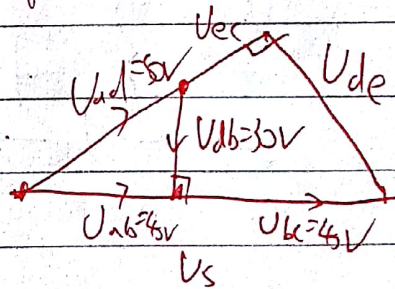 Uec
Uad=50V
Ude
Udb=30V
Uab=40V
Ubc=40V
Us